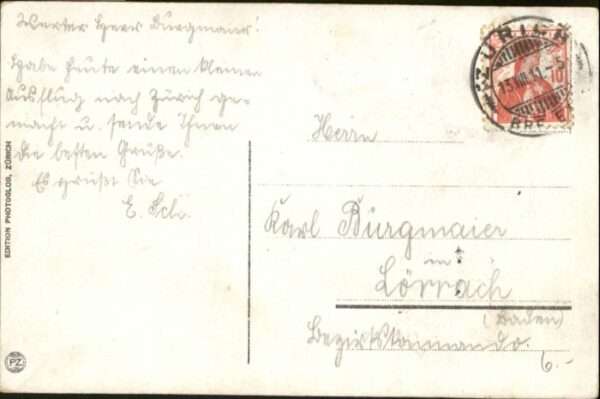 Werter Herr Burgmaier!
Habe heute einen kleinen
Ausflug nach Zürich ge-
macht u. sende Ihnen
die besten Grüße.
Es grüßt Sie
E.
ZÜRICH
13.VIII.11.-5
10
HELVETIA
BRF.
Herrn
Karl Burgmaier
in
Lörrach
(Baden)
Bezirkskommando.
6.-
EDITION PHOTOGLOB, ZÜRICH
PZ